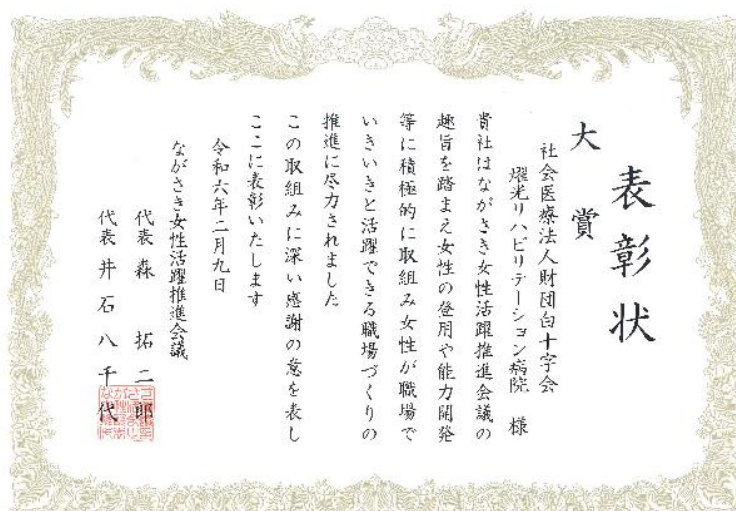 表彰状
大賞
社会医療法人財団白十字会
燿光リハビリテーション病院 様
貴社はながさき女性活躍推進会議の
趣旨を踏まえ女性の登用や能力開発
等に積極的に取組み女性が職場で
いきいきと活躍できる職場づくりの
推進に尽力されました
この取組みに深い感謝の意を表し
ここに表彰いたします
令和六年二月九日
ながさき女性活躍推進会議
代表 森 拓二郎
代表 井石八千代